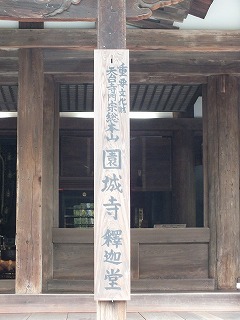 重要文化財
天台寺門宗総本山
園城寺 釋迦堂